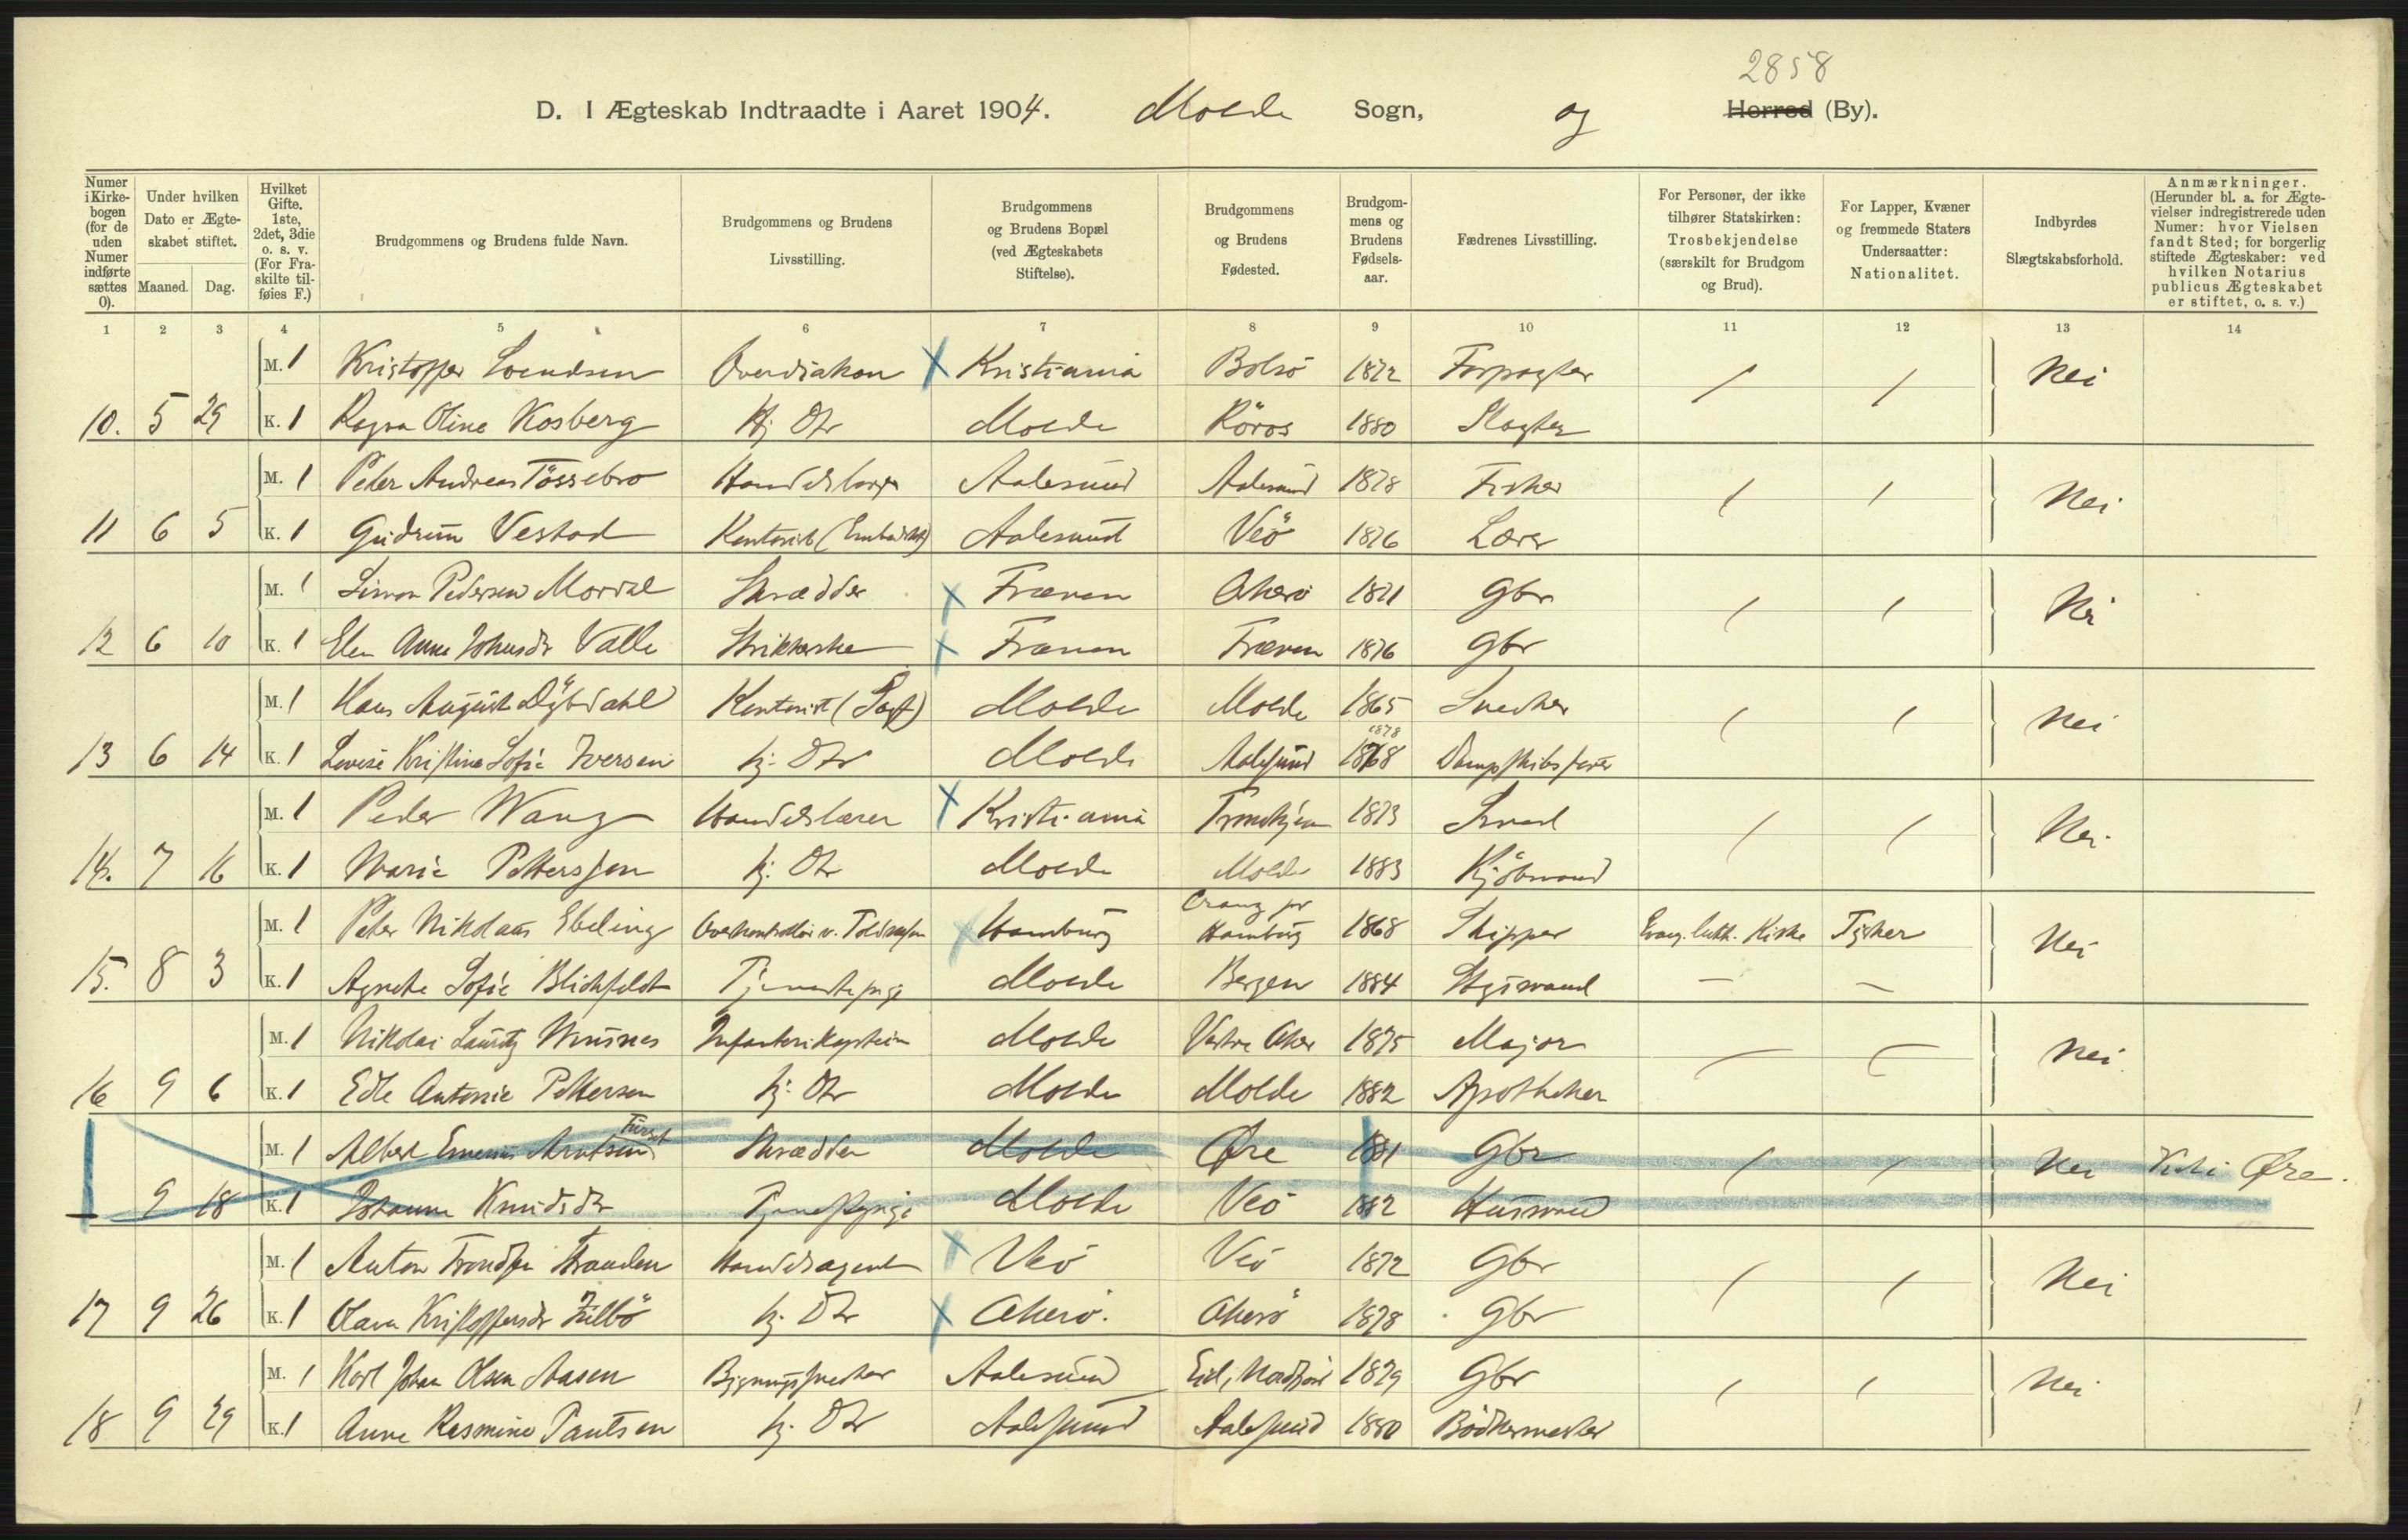 2858
D. I Ægteskab Indtraadte i Aaret 1904. Molde Sogn, og Herred (By).
Numer i Kirkebogen (for de uden Numer indførte sættes 0).
Under hvilken Dato er Ægteskabet stiftet.
Maaned. Dag.
Hvilket Gifte. 1ste, 2det, 3die o. s. v. (For Fraskilte tilføies F.)
Brudgommens og Brudens fulde Navn.
Brudgommens og Brudens Livsstilling.
Brudgommens og Brudens Bopæl (ved Ægteskabets Stiftelse).
Brudgommens og Brudens Fødested.
Brudgommens og Brudens Fødselsaar.
Fædrenes Livsstilling.
For Personer, der ikke tilhører Statskirken: Trosbekjendelse (særskilt for Brudgom og Brud).
For Lapper, Kvæner og fremmede Staters Undersaatter: Nationalitet.
Indbyrdes Slægtskabsforhold.
Anmærkninger. (Herunder bl. a. for Ægtevielser indregistrerede uden Numer: hvor Vielsen fandt Sted; for borgerlig stiftede Ægteskaber: ved hvilken Notarius publicus Ægteskabet er stiftet, o. s. v.)
1 2 3 4 5 6 7 8 9 10 11 12 13 14
M. 1 Kristoffer Svendsen Overdiakon X Kristiania Bolsö 1872 Forpagter / / Nei
10. 5 29 K. 1 Ragna Oline Kosberg Hj. Dtr Molde Röros 1880 Slagter
M. 1 Peder Andreas Tössebro Aalesund Aalesund 1878 Fisker / / Nei
11 6 5 K. 1 Gudrun Vestad Kontorist Aalesund Veö 1876 Lærer
M. 1 Simon Pedersen Mordal Skrædder X Frænen Akerö 1871 Gbr / / Nei
12 6 10 K. 1 Elen Anne Johnsdr Valle Strikkerske X Frænen Frænen 1876 Gbr
M. 1 Hans August Dybdahl Kontorist Molde Molde 1865 Snedker / / Nei
1878
13 6 14 K. 1 Lovise Kristine Sofie Iversen hj. Dtr Molde Aalesund 1868 Dampskibsfører
M. 1 Peder Wang Handelslærer X Kristiania Trondhjem 1873 Smed / / Nei
14. 7 16 K. 1 Marie Pettersen hj. Dtr Molde Molde 1883 Kjöbmand
M. 1 Peter Nikolaus Ebeling X Hamburg Cranz pr Hamburg 1868 Skipper Evang. luth. Kirke Tysker Nei
15. 8 3 K. 1 Agnete Sofie Blichfeldt Tjenestepige Molde Bergen 1884 Styrmand — —
M. 1 Nikolai Lauritz Infanterikaptein Molde Vestre Aker 1875 Major Nei
16 9 6 K. 1 Edle Antonie Pettersen hj. Dtr Molde Molde 1882 Apotheker
M. 1 Albert Arntsen Furset Skrædder Molde Øre 1881 Gbr / / Nei Viet i Øre.
9 18 K. 1 Johanne Knudsdr Tjenestepige Molde Veö 1882 Husmand
M. 1 Anton Trondsen Stranden Handelsagent X Veö Veö 1872 Gbr / / Nei
17 9 26 K. 1 Olava Kristoffersdr Julbö hj. Dtr X Akerö. Akerö 1878 Gbr
M. 1 Karl Johan Olsen Aasen Bygningssnedker Aalesund Eid, Nordfjord 1879 Gbr / / Nei
18 9 29 K. 1 Anne Rasmine Paulsen hj. Dtr Aalesund Aalesund 1880 Bödkermester